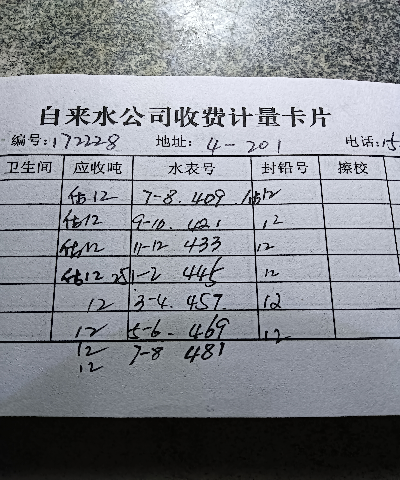 自来水公司收费计量卡片
编号:172228 地址: 4-201 电话:
卫生间 应收吨 水表号 封铅号 擦校
估12 7-8. 409 12
估12 9-10. 421 12
估12 11-12 433 12
估12 25 1-2 445 12
12 3-4. 457 12
12 5-6. 469 12
12 7-8 481
12